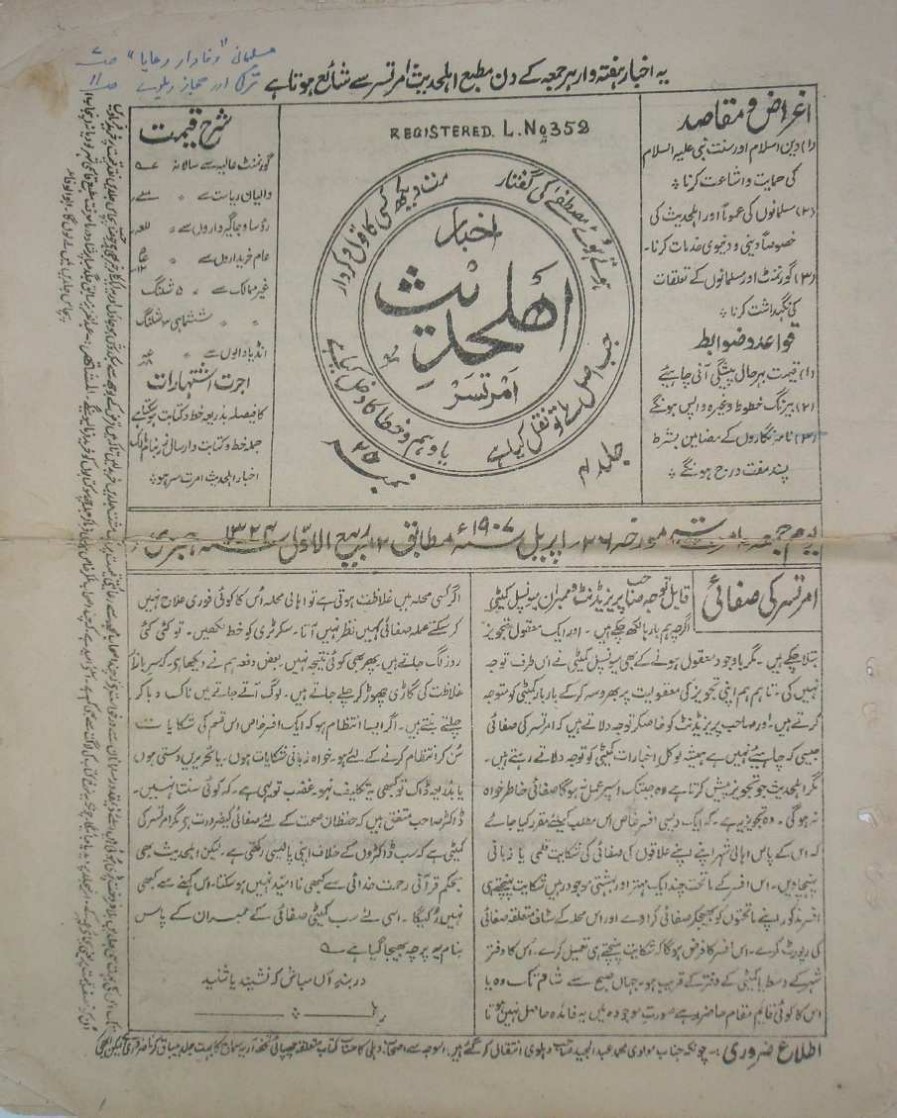 مسلمانی "وفادار رعایا" ص
ترکی اور حجاز ریلوے ص ۱۱
یہ اخبار ہفتہ وار ہر جمعہ کے دن مطبع اہلحدیث امرتسر سے شائع ہوتا ہے
اغراض و مقاصد
(۱) دین اسلام اور سنت نبی علیہ السلام
کی حمایت و اشاعت کرنا۔
(۲) مسلمانوں کی عموماً اور اہلحدیث کی
خصوصاً دینی و دنیوی خدمات کرنا۔
(۳) گورنمنٹ اور مسلمانوں کے تعلقات
کی نگہداشت کرنا۔
قواعد و ضوابط
(۱) قیمت بہر حال پیشگی آنی چاہئے
(۲) بیرنگ خطوط وغیرہ واپس ہونگے
(۳) نامہ نگاروں کے مضامین بشرط
پسند مفت درج ہونگے
REGISTERED. L. No 352
ہوتے ہوئے مصطفےٰ کی گفتار
مت دیکھ کسی کا قول و کردار
جب اصل ملے تو نقل کیا ہے
یاں وہم و خطا کا دخل کیا ہے
اخبار
اهلحديث
امرتسر
جلد ۴
نمبر ۲۵
شرح قیمت
گورنمنٹ عالیہ سے سالانہ
والیان ریاست سے
رؤسا و جاگیرداروں سے
عام خریداروں سے
غیر ممالک سے ۵ شلنگ
ششماہی ۳ شلنگ
انڈیا والوں سے
اجرت اشتہارات
کا فیصلہ بذریعہ خط و کتابت ہو سکتا ہے
جملہ خط و کتابت و ارسال زر بنام مالک
اخبار اہلحدیث امرت سر ہو۔
یوم جمعہ امرتسر مورخہ ۲۶۔ اپریل سنہ ۱۹۰۷ء مطابق ۱۲ ربیع الاول سنہ ۱۳۲۴ ہجری
امرتسر کی صفائی
قابل توجہ صاحب پریزیڈنٹ و ممبران میونسپل کمیٹی
اگرچہ ہم بارہا لکھ چکے ہیں۔ اور ایک معقول تجویز
بتلا چکے ہیں۔ مگر باوجود معقول ہونے کے بھی میونسپل کمیٹی نے اس طرف توجہ
نہیں کی۔ تاہم ہم اپنی تجویز کی معقولیت پر بھروسہ کر کے بار بار کمیٹی کو متوجہ
کرتے ہیں۔ اور صاحب پریزیڈنٹ کو خاصکر توجہ دلاتے ہیں کہ امرتسر کی صفائی
جیسی کہ چاہئے نہیں ہے ہمیشہ لوکل اخبارات کمیٹی کو توجہ دلاتے رہتے ہیں۔
مگر اہلحدیث جو تجویز پیش کرتا ہے وہ جبتک اسپر عمل نہ ہوگا صفائی خاطر خواہ
نہ ہوگی۔ وہ تجویز یہ ہے۔ کہ ایک دیسی افسر خاص اس مطلب کیلئے مقرر کیا جائے
کہ اس کے پاس اہالی شہر اپنے اپنے علاقوں کی صفائی کی شکایت قلمی یا زبانی
پہنچا دیں۔ اس افسر کے ماتحت چند ایک مہتر اور بہشتی موجود رہیں شکایت پہنچتے ہی
افسر مذکور اپنے ماتحتوں کو بھیجکر صفائی کرا دے اور اس محلہ کے سٹاف متعلقہ صفائی
کی رپورٹ کرے۔ اس افسر کا فرض ہوگا کہ شکایت پہنچتے ہی تعمیل کرے۔ اس کا دفتر
شہر کے وسط یا کمیٹی کے دفتر کے قریب ہو۔ جہاں صبح سے شام تک وہ یا
اس کا کوئی قایم مقام حاضر رہے صورت موجودہ میں یہ فائدہ حاصل نہیں ہوتا
اگر کسی محلہ میں غلاظت ہوتی ہے تو اہالی محلہ اس کا کوئی فوری علاج نہیں
کر سکتے عملہ صفائی کہیں نظر نہیں آتا۔ سکرٹری کو خط لکھیں۔ تو کئی کئی
روز لگ جاتے ہیں۔ پھر بھی کوئی نتیجہ نہیں۔ بعض دفعہ ہم نے دیکھا ہے۔ کہ سر بازار
غلاظت کی گاڑی چھوڑ کر چلے جاتے ہیں۔ لوگ آتے جاتے ہیں ناک دبا کر
چلتے بنتے ہیں۔ اگر ایسا انتظام ہو کہ ایک افسر خاص اس قسم کی شکایات
سن کر انتظام کرنے کے لئے ہو۔ خواہ زبانی شکایات ہوں۔ یا تحریریں دستی ہوں
یا بذریعہ ڈاک تو کبھی یہ تکلیف نہ ہو۔ غضب تو یہی ہے۔ کہ کوئی سنتا نہیں۔
ڈاکٹر صاحب متفق ہیں کہ حفظان صحت کے لئے صفائی کی ضرورت ہے مگر امرتسر کی
کمیٹی ہے کہ سب ڈاکٹروں کے خلاف اپنی پالیسی رکھتی ہے۔ لیکن اہلحدیث بھی
بحکم قرآنی رحمت خدائی سے کبھی نا امید نہیں ہو سکتا۔ اس کہنے سے کبھی
نہیں رکیگا۔ اسی لئے سب کمیٹی صفائی کے ممبران کے پاس
بنام یہ پرچہ بھیجا گیا ہے۔
در بند آں مباش کہ نشنید یا شنید
اطلاع ضروری :۔ چونکہ جناب مولوی محمد عبدالمجید صاحب دہلوی انتقال کر گئے ہیں،